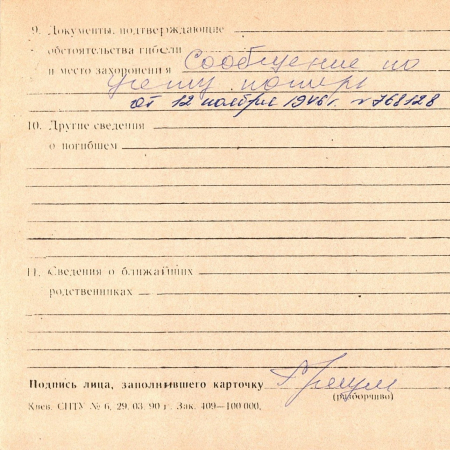 9. Документы, подтверждающие
обстоятельства гибели
и место захоронения Сообщение по
учету потерь
от 12 ноября 1946 г. №768128
10. Другие сведения
о погибшем
11. Сведения о ближайших
родственниках
Подпись лица, заполнившего карточку
(разборчиво)
Киев. СПТУ № 6, 29. 03. 90 г. Зак. 409—100 000.